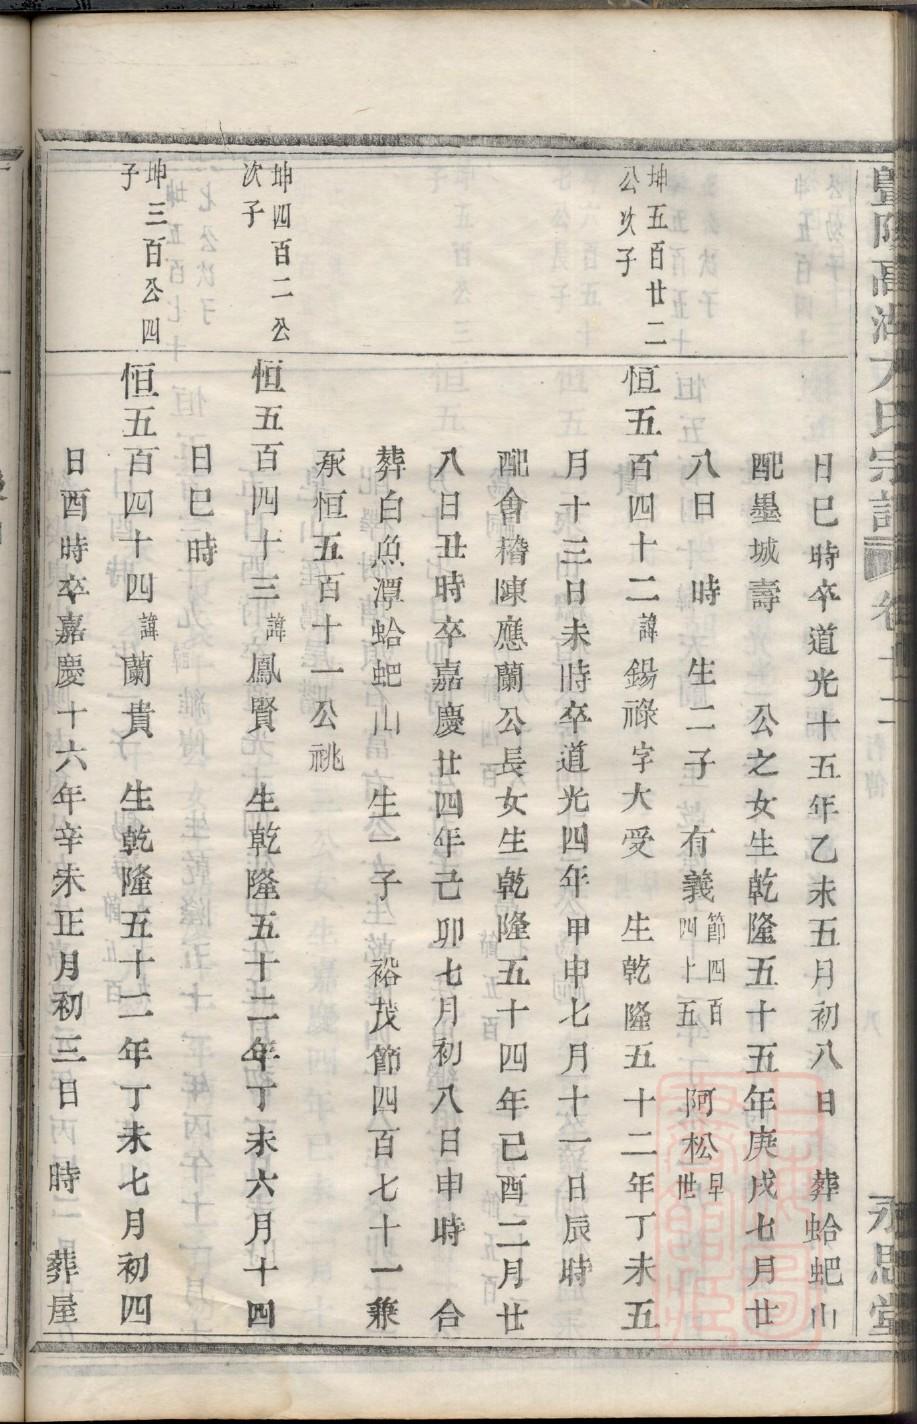 日巳時卒道光十五年乙未五月初八日　葬蛤蚆山
配墨城壽　公之女生乾隆五十五年庚戌七月廿
八日　時　生二子　有義節四百四上五　阿松早世
坤五百廿二公次子
恒五百四十二諱錫祿字大受　生乾隆五十二年丁未五
月十三日未時卒道光四年甲申七月十一日辰時
配會稽陳應蘭公長女生乾隆五十四年己酉二月廿
八日丑時卒嘉慶廿四年己卯七月初八日申時　合
葬白魚潭蛤蚆山　生一子　裕茂節四百七十一兼
承恒五百十一公祧
坤四百二公次子
恒五百四十三諱鳳賢　生乾隆五十二年丁未六月十四
日巳時
坤三百公四子
恒五百四十四諱蘭貴　生乾隆五十二年丁未七月初四
日酉時卒嘉慶十六年辛未正月初三日　時　葬屋
永思堂